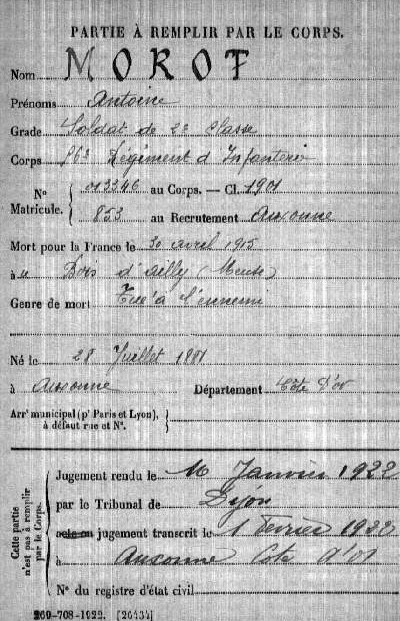 PARTIE À REMPLIR PAR LE CORPS.
Nom MOROT
Prénoms Antoine
Grade Soldat de 2e Classe
Corps 56e Régiment d'Infanterie
No Matricule. { 013346 au Corps. — Cl. 1901
853 au Recrutement Auxonne
Mort pour la France le 30 avril 1915
à u Bois d'ailly (Meuse)
Genre de mort Tué à l'ennemi
Né le 28 Juillet 1881
à Auxonne Département Côte d'or
Arrt municipal (pr Paris et Lyon), à défaut rue et No. }
Cette partie n'est pas à remplir par le Corps.
Jugement rendu le 10 Janvier 1922
par le Tribunal de Dijon
acte ou jugement transcrit le 1 Février 1922
à Auxonne Côte d'or
No du registre d'état civil
269-708-1922. [26434]